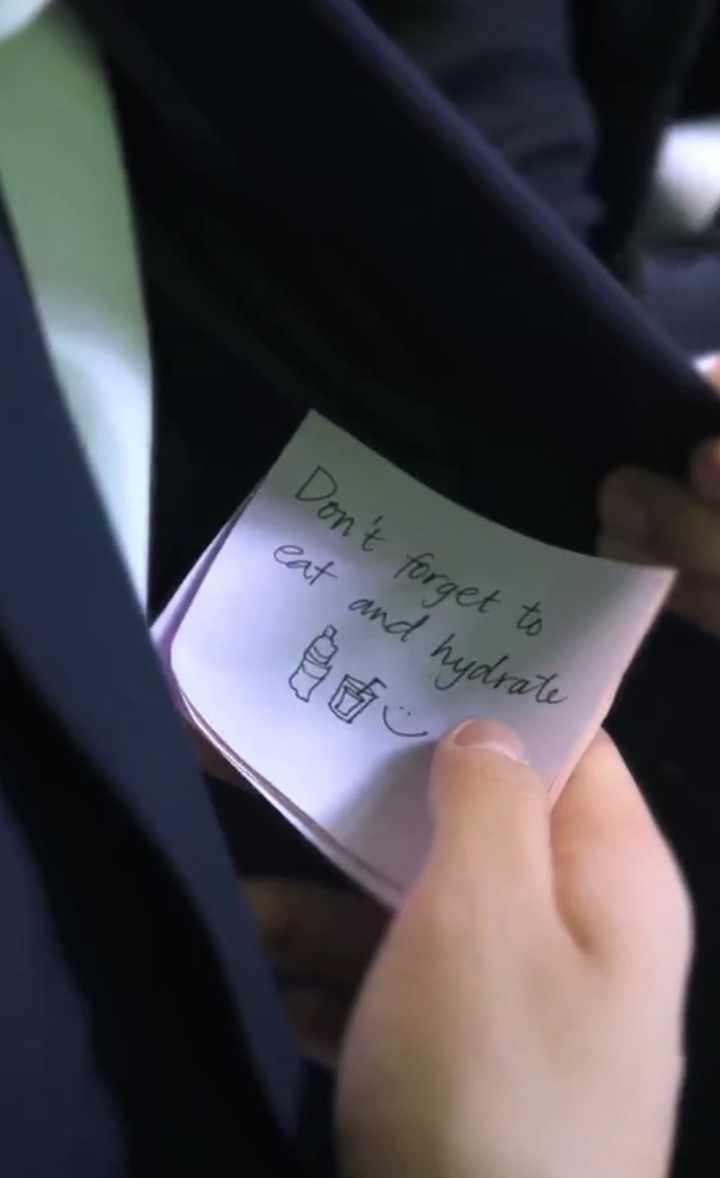 Don't forget to
eat and hydrate